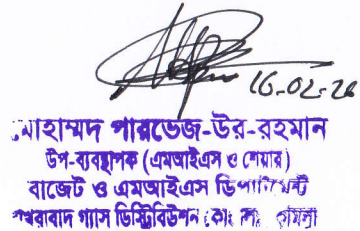 16-02-26
মোহাম্মদ পারভেজ-উর-রহমান
উপ-ব্যবস্থাপক (এমআইএস ও শেয়ার)
বাজেট ও এমআইএস ডিপার্টমেন্ট
বাখরাবাদ গ্যাস ডিস্ট্রিবিউশন কোঃ লিঃ, কুমিল্লা